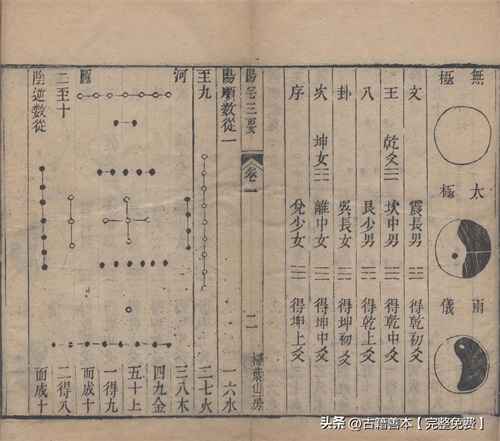 無極
太極
兩儀
文 震長男 ☳ 得乾初爻
王 乾爻 ☰ 坎中男 ☵ 得乾中爻
八 艮少男 ☶ 得乾上爻
卦 巽長女 ☴ 得坤初爻
次 坤女 ☷ 離中女 ☲ 得坤中爻
序 兌少女 ☱ 得坤上爻
陽宅三要 卷一 二 掃葉山房
陽順數從一
至九
河
二至十
陰逆數從
一六水
二七火
三八木
四九金
五十土
一得九
而成十
二得八
而成十
头条 @古籍善本【完整免费】